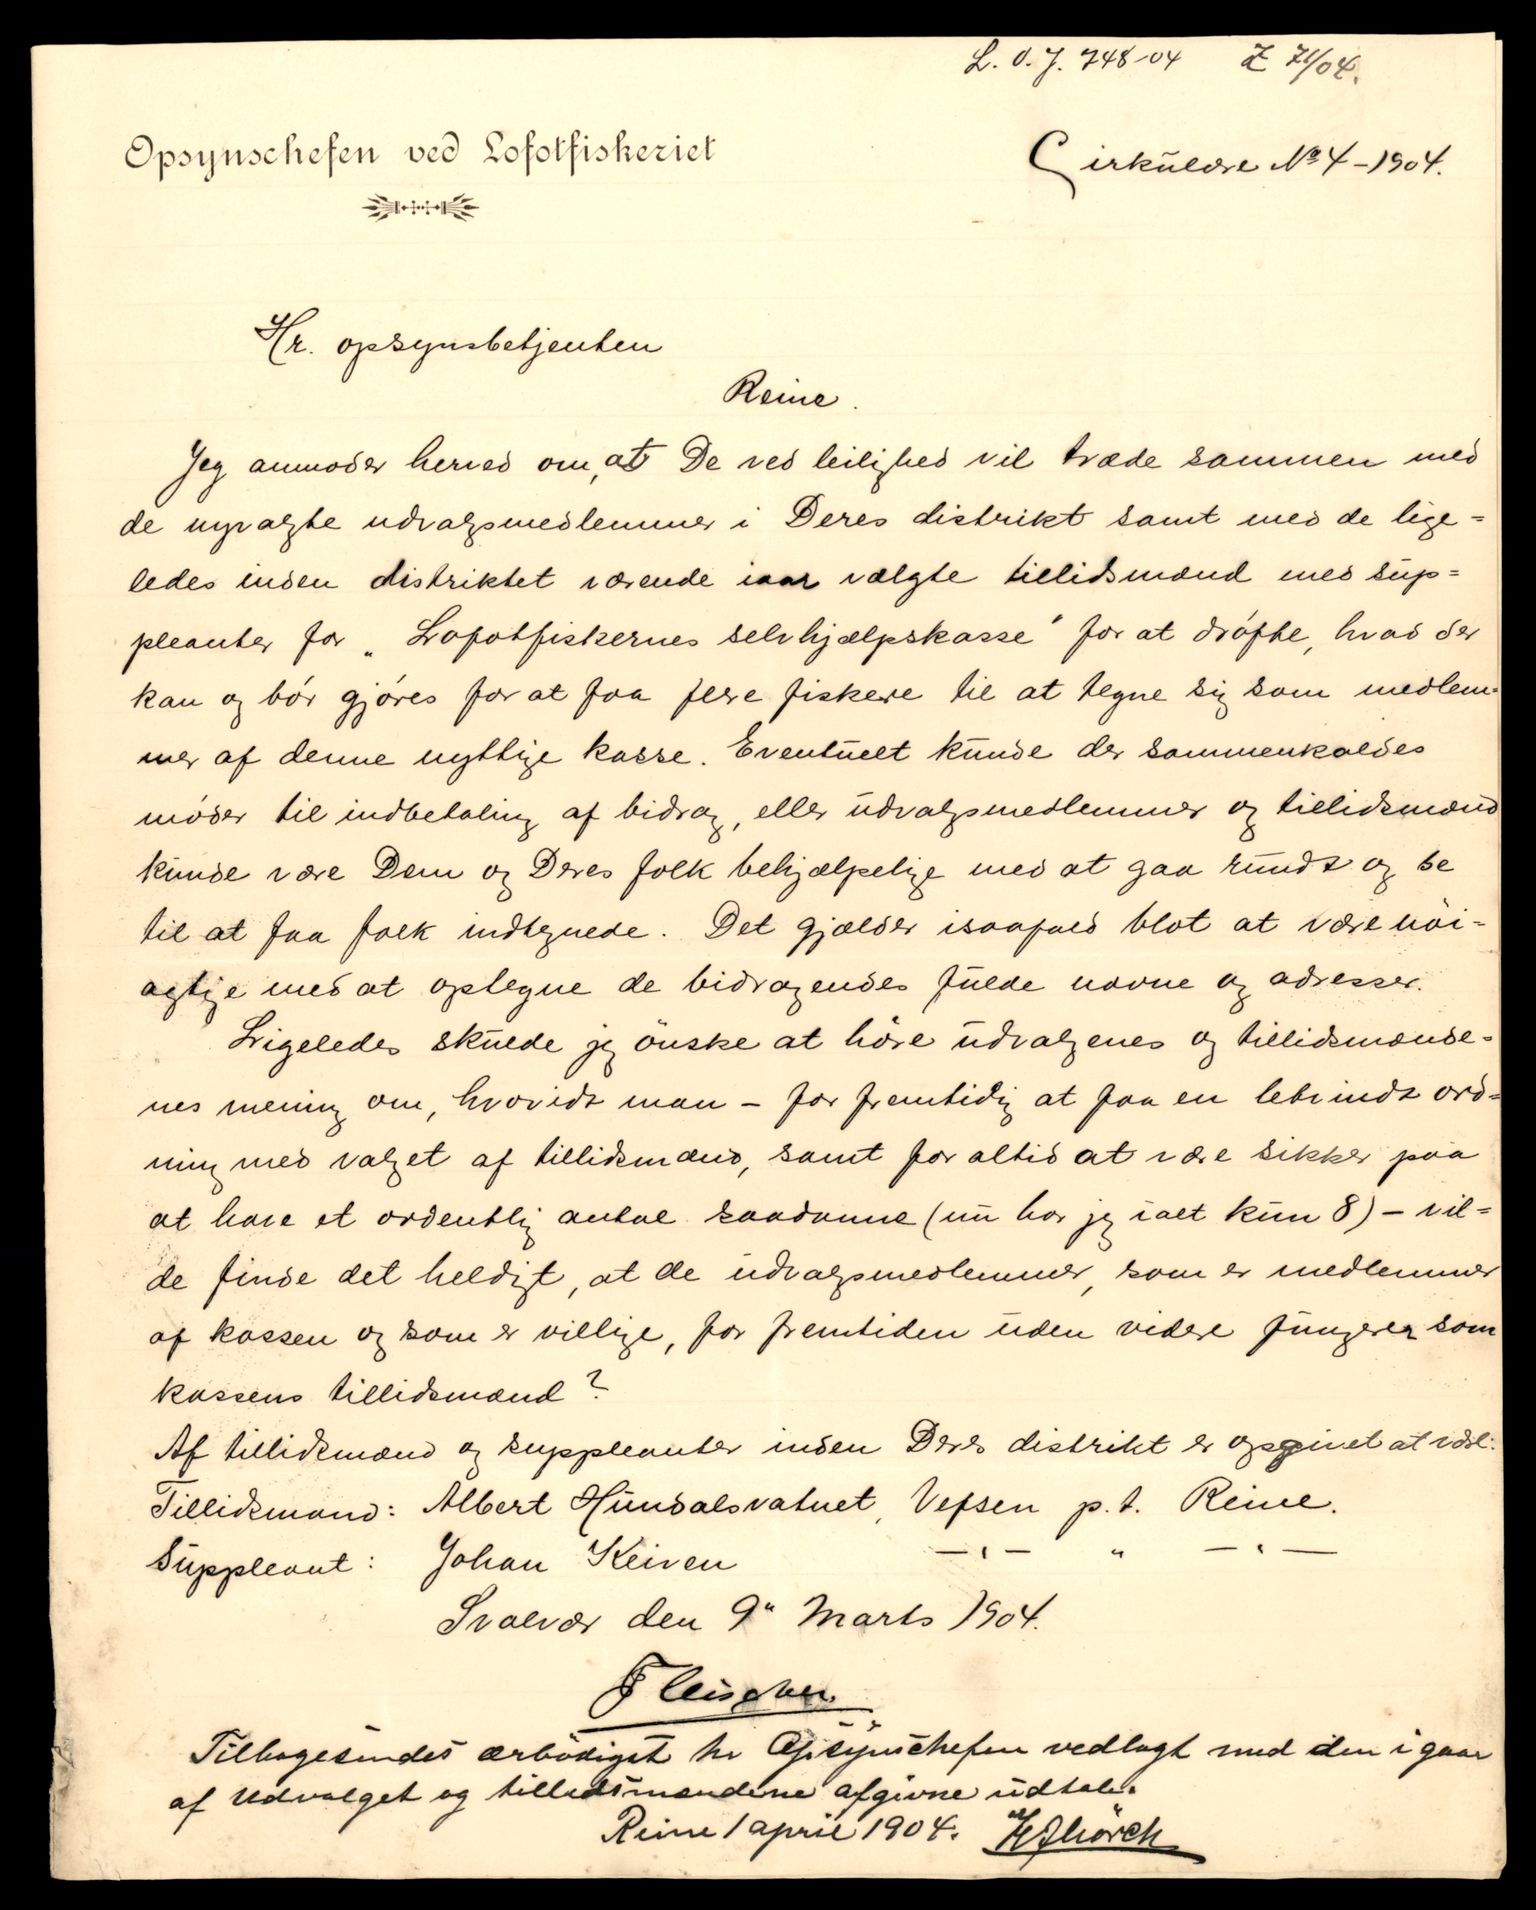 L. O. J. 748-04 Z 71/04.
Opsynschefen ved Lofotfiskeriet
Cirkulære No 4 - 1904.
Hr. opsynsbetjenten
Reine.
Jeg anmoder herved om, at De ved leilighed vil træde sammen med
de nyvalgte udvalgsmedlemmer i Deres distrikt samt med de lige=
ledes inden distriktet værende iaar valgte tillidsmænd med sup=
pleanter for „Lofotfiskernes selvhjælpskasse" for at drøfte, hvad der
kan og bør gjøres for at faa flere fiskere til at tegne sig som medlem=
mer af denne nyttige kasse. Eventuelt kunde der sammenkaldes
møder til indbetaling af bidrag, eller udvalgsmedlemmer og tillidsmænd
kunde være Dem og Deres folk behjælpelige med at gaa rundt og se
til at faa folk indtegnede. Det gjælder isaafald blot at være nöi=
agtige med at optegne de bidragendes fulde navne og adresser.
Ligeledes skulde jeg önske at höre udvalgenes og tillidsmænde=
nes mening om, hvorvidt man - for fremtidig at faa en letvindt ord=
ning med valget af tillidsmænd, samt for altid at være sikker paa
at have et ordentlig antal saadanne (nu har jeg ialt kun 8) - vil=
de finde det heldigt, at de udvalgsmedlemmer, som er medlemmer
af kassen og som er villige, for fremtiden uden videre fungerer som
kassens tillidsmænd?
Af tillidsmænd og suppleanter inden Deres distrikt er opgivet at være:
Tillidsmand: Albert Hundalsvatnet, Vefsen p. t. Reine.
Suppleant: Johan Keiven —"— " —"—
Svolvær den 9" Marts 1904.
Fleischer.
Tilbagesendes ærbödigst hr Opsynschefen vedlagt med den i gaar
af Udvalget og tillidsmændene afgivne udtal.
Reine 1 april 1904.